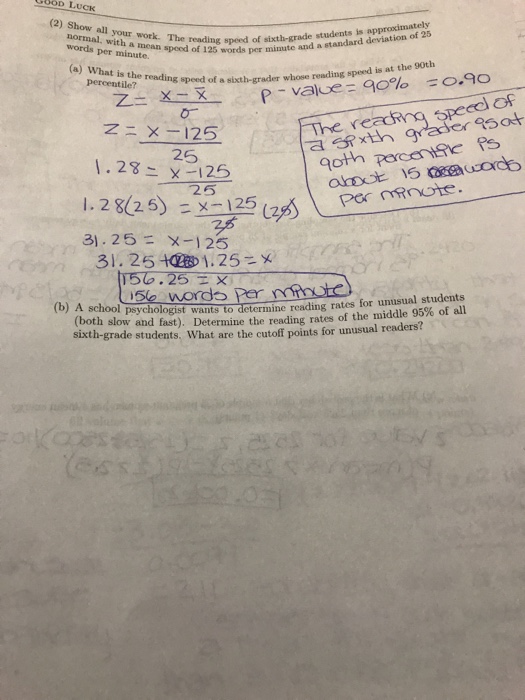 GOOD LUCK
(2) Show all your work. The reading speed of sixth-grade students is approximately
normal, with a mean speed of 125 words per minute and a standard deviation of 25
words per minute.
(a) What is the reading speed of a sixth-grader whose reading speed is at the 90th
percentile?
P-value = 90% = 0.90
Z = x - x̄
σ
Z = x - 125
25
1.28 = x - 125
25
1.28(25) = x - 125 (25)
25
31.25 = x - 125
31.25 + 1.25 = x
156.25 = x
156 words per minute
The reading speed of
a sixth grader is at
90th percentile is
about 15 words
per minute.
(b) A school psychologist wants to determine reading rates for unusual students
(both slow and fast). Determine the reading rates of the middle 95% of all
sixth-grade students. What are the cutoff points for unusual readers?